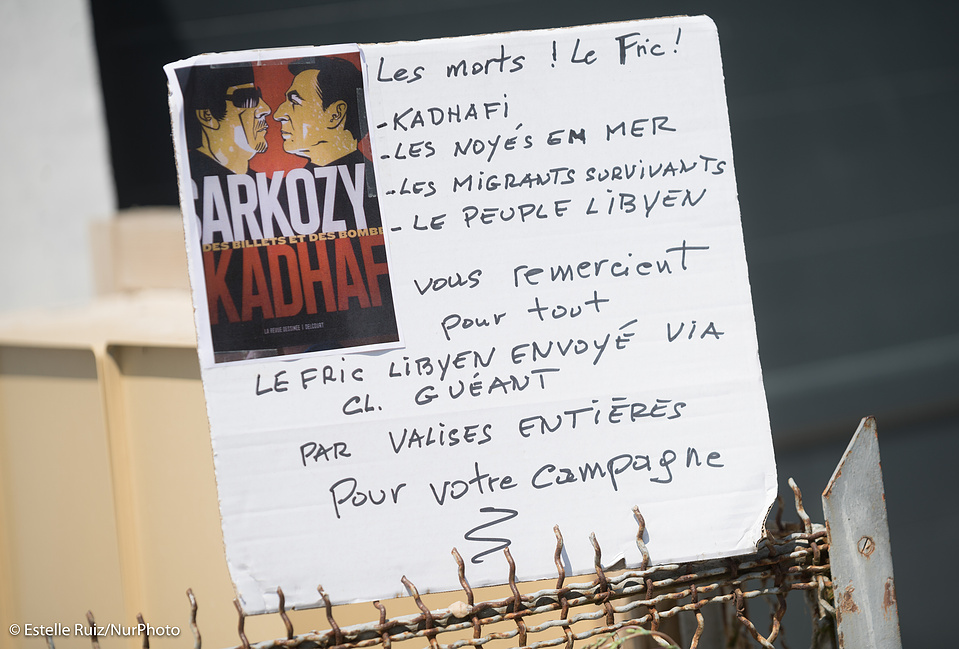 Les morts ! Le Fric !
-KADHAFI
-LES NOYÉS EN MER
-LES MIGRANTS SURVIVANTS
- LE PEUPLE LIBYEN
vous remercient
pour tout
LE FRIC LIBYEN ENVOYÉ VIA
CL. GUÉANT
PAR VALISES ENTIÈRES
Pour votre campagne
SARKOZY
DES BILLETS ET DES BOMBE
KADHAF
LA REVUE DESSINÉE | DELCOURT
© Estelle Ruiz/NurPhoto